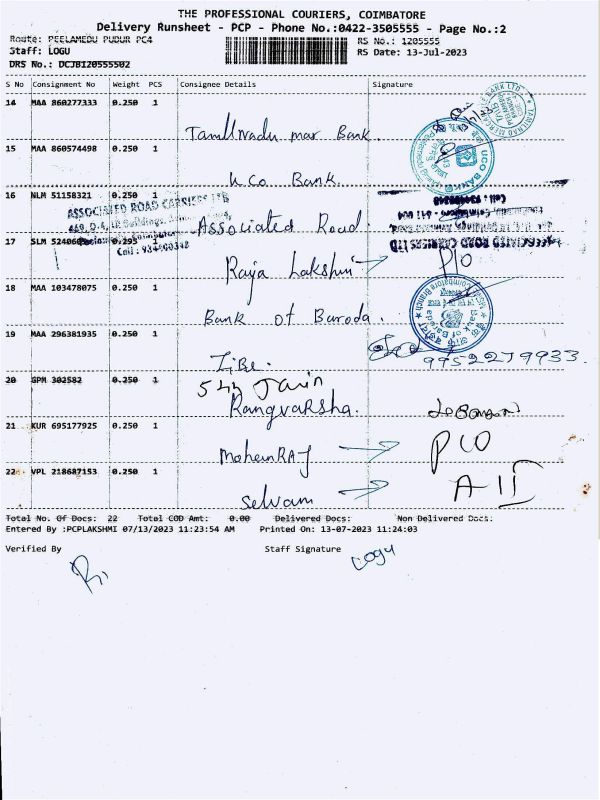 THE PROFESSIONAL COURIERS, COIMBATORE
Delivery Runsheet - PCP - Phone No.:0422-3505555 - Page No.:2
Route: PEELAMEDU PUDUR PC4
RS No.: 1205555
Staff: LOGU
RS Date: 13-Jul-2023
DRS No.: DCJBI20555502
S No Consignment No Weight PCS Consignee Details Signature
14 MAA 860277333 0.250 1
Tamilnadu mar Bank.
15 MAA 860574498 0.250 1
UCO BANK
Uco Bank.
16 NLM 51158321 0.250 1
ASSOCIATED ROAD CARRIERS LTD
Associated Road
ASSOCIATED ROAD CARRIERS LTD
17 SLM 0.295 1
Raja Lakshmi
P/O
18 MAA 103478075 0.250 1
Bank of Baroda.
Bank of Baroda
19 MAA 296381935 0.250 1
9952279933.
20 GPM 302582 0.250 1
Jain
Rangvarsha.
21 KUR 695177925 0.250 1
MohanRAJ
22 VPL 218687153 0.250 1
selvam
Total No. Of Docs: 22 Total COD Amt: 0.00 Delivered Docs: Non Delivered Docs:
Entered By :PCPLAKSHMI 07/13/2023 11:23:54 AM Printed On: 13-07-2023 11:24:03
Verified By Staff Signature
Logu